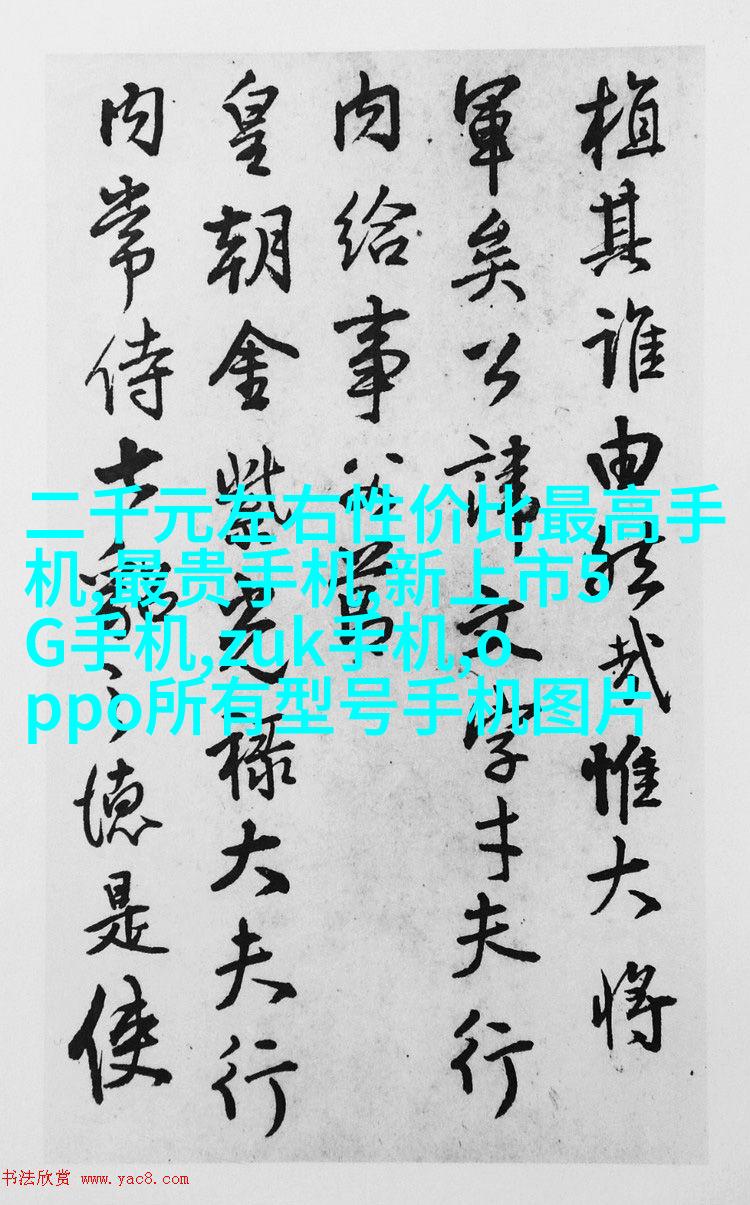 植其誰由能哉惟大將
軍矣公諱文字才夫行
内給事
皇朝金紫光祿大夫行
内常侍士之德是使
二千元左右性价比最高手
机,最贵手机,新上市5
G手机,zuk手机,o
ppo所有型号手机图片
书法欣赏 www.yac8.com